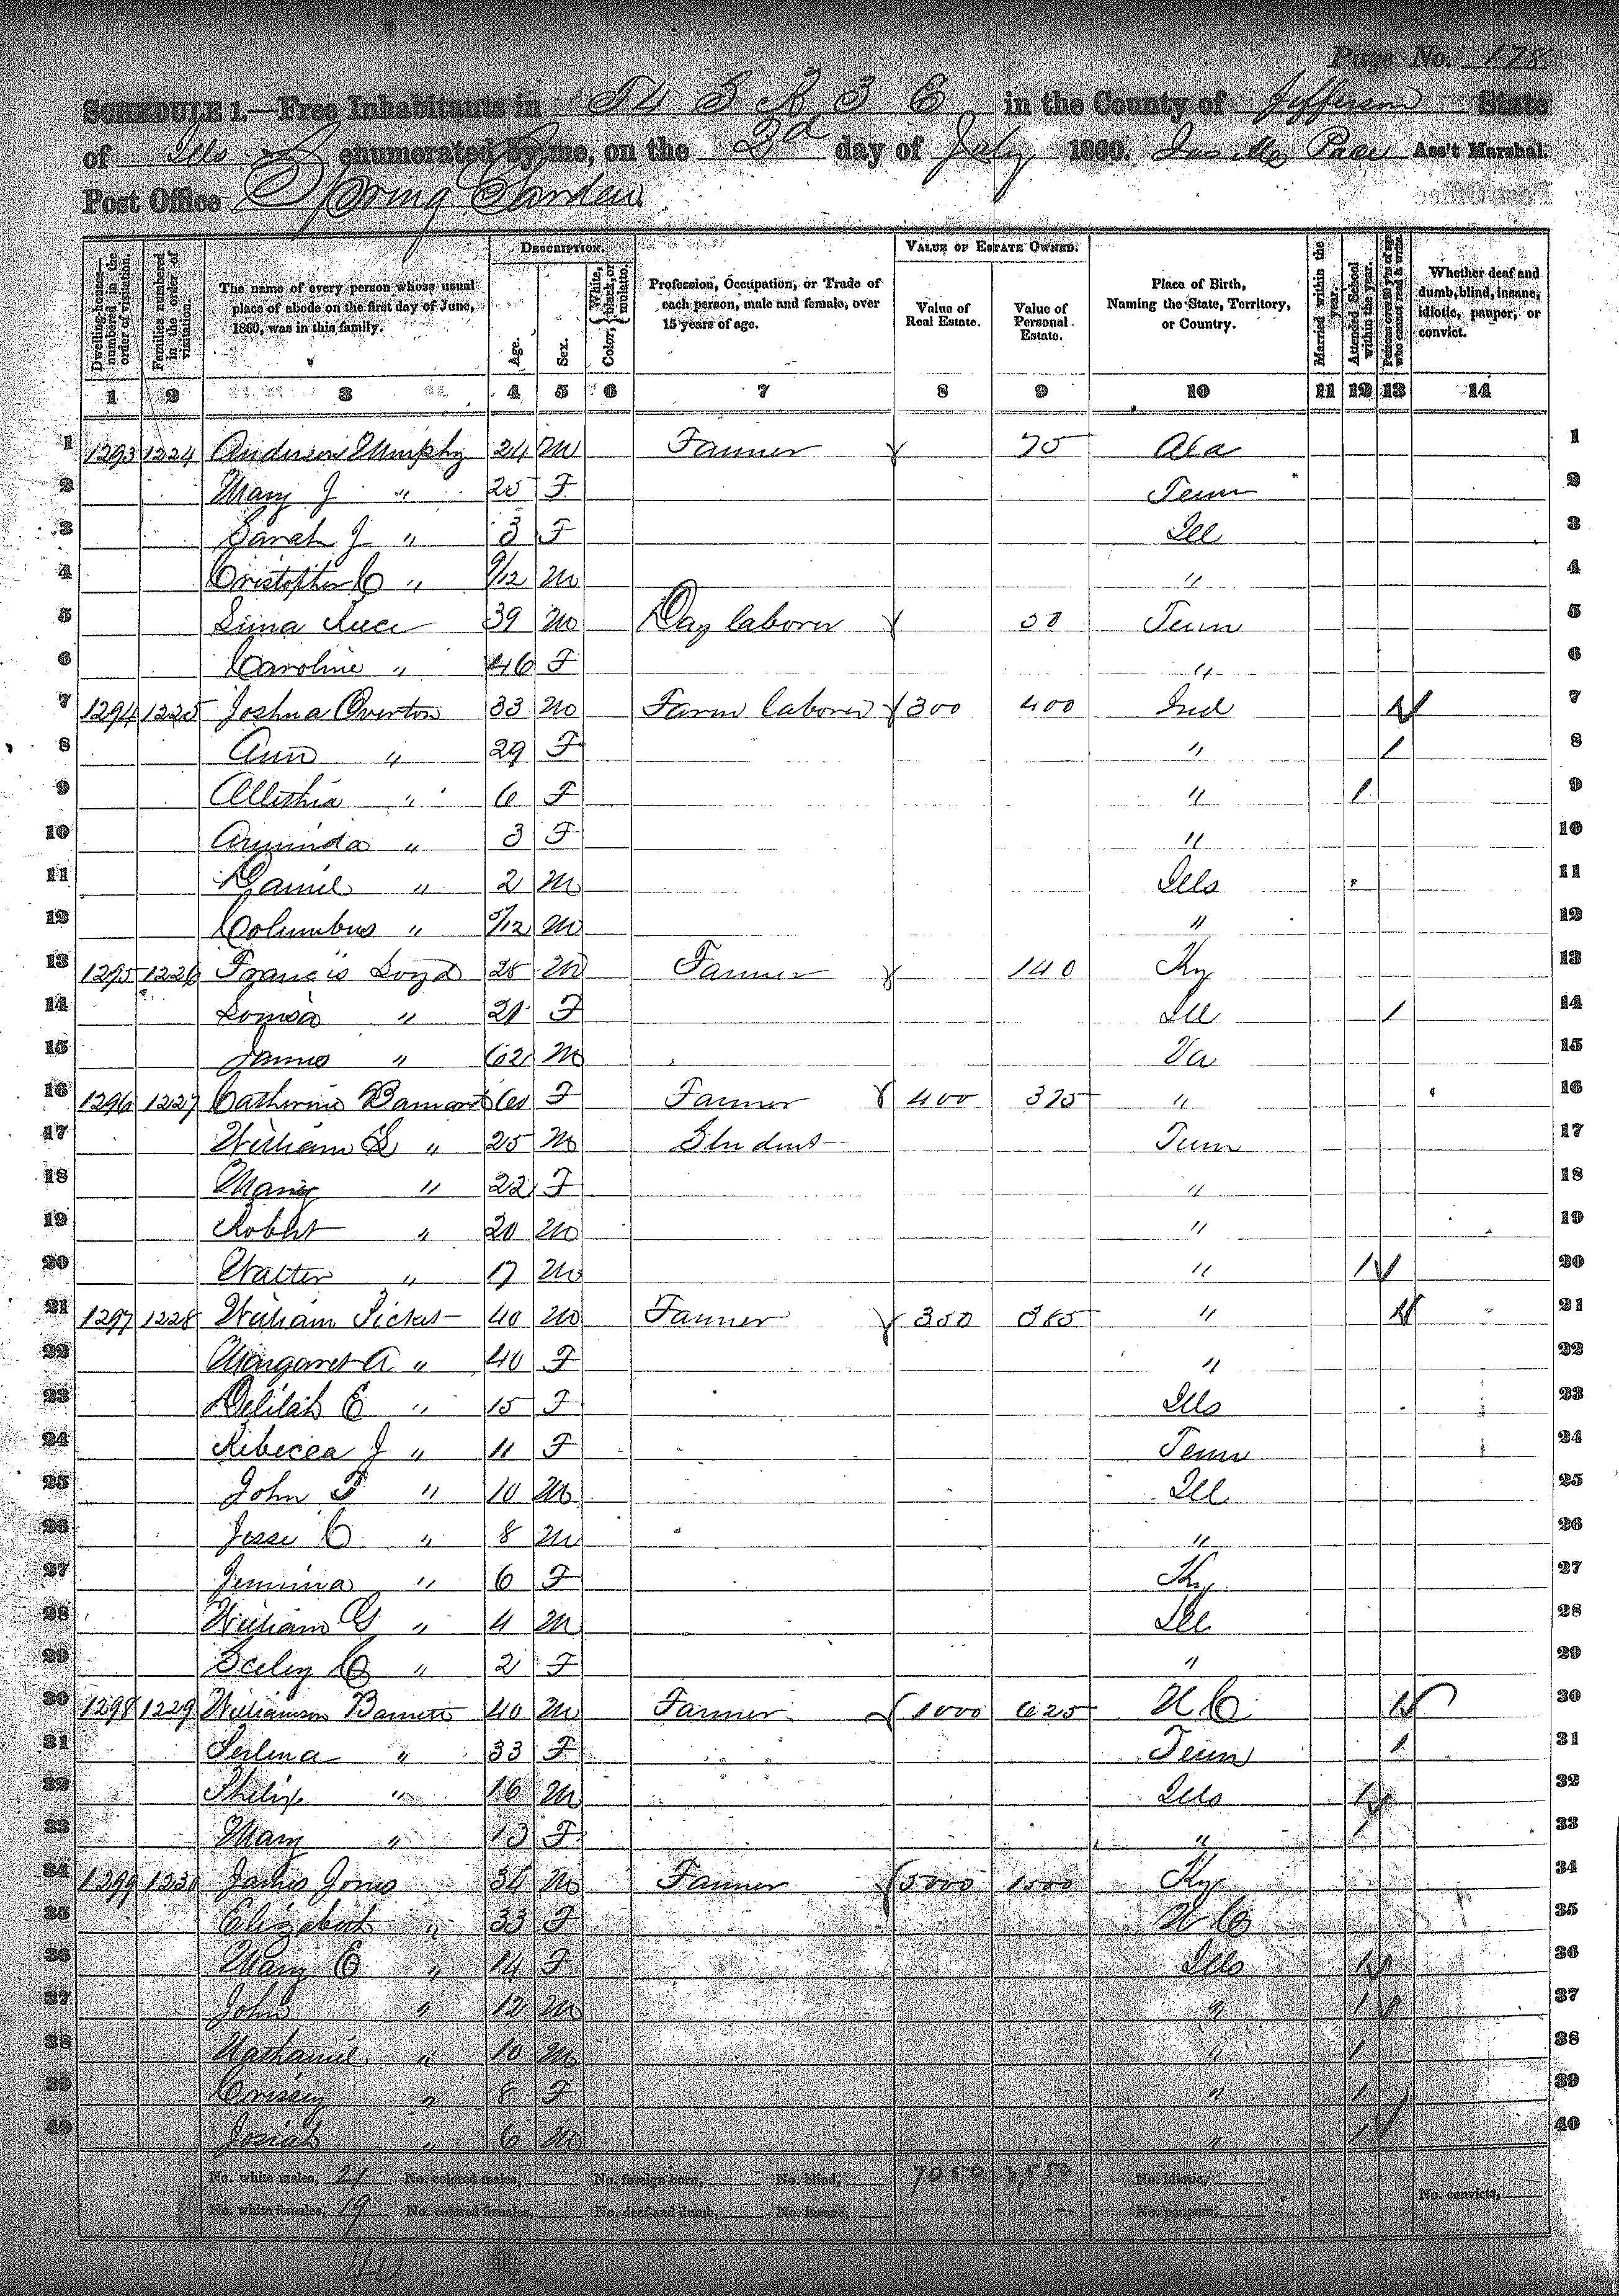 Page No. 178
SCHEDULE 1.—Free Inhabitants in T4 S R 3 E in the County of Jefferson State
of Ills enumerated by me, on the 2d day of July 1860. Pace Ass't Marshal.
Post Office Spring Garden
Dwelling-houses—numbered in the order of visitation.
Families numbered in the order of visitation.
The name of every person whose usual place of abode on the first day of June, 1860, was in this family.
DESCRIPTION.
Age.
Sex.
Color, White, black, or mulatto.
Profession, Occupation, or Trade of each person, male and female, over 15 years of age.
VALUE OF ESTATE OWNED.
Value of Real Estate.
Value of Personal Estate.
Place of Birth, Naming the State, Territory, or Country.
Married within the year.
Attended School within the year.
Persons over 20 y'rs of age who cannot read & write.
Whether deaf and dumb, blind, insane, idiotic, pauper, or convict.
1 2 3 4 5 6 7 8 9 10 11 12 13 14
1 1293 1224 Anderson Murphy 24 M Farmer 75 Ala 1
2 Mary J " 25 F Tenn 2
3 Sarah J " 3 F Ill 3
4 Cristopher C " 9/12 M " 4
5 39 M Day laborer 50 Tenn 5
6 Caroline " 46 F " 6
7 1294 1225 Joshua Overton 33 M Farm laborer 300 400 Ind 1 7
8 Ann " 29 F " 1 8
9 Allethia " 6 F " 1 9
10 Arminda " 3 F " 10
11 Daniel " 2 M Ills 11
12 Columbus " 5/12 M " 12
13 1295 1226 Francis Loyd 25 M Farmer 140 Ky 13
14 Louisa " 21 F Ill 1 14
15 James " 62 M Va 15
16 1296 1227 Catherine 60 F Farmer 400 375 " 16
17 William " 25 M Student Tenn 17
18 Mary " 22 F " 18
19 Robert " 20 M " 19
20 Walter " 17 M " 1 20
21 1297 1228 William 40 M Farmer 350 385 " 1 21
22 Margaret A " 40 F " 22
23 Delilah E " 15 F Ills 23
24 Rebecca J " 11 F Tenn 24
25 John T " 10 M Ill 25
26 Jesse C " 8 M " 26
27 Jemima " 6 F Ky 27
28 William G " 4 M Ill 28
29 C " 2 F " 29
30 1298 1229 Williamson Barnett 40 M Farmer 1000 625 N C 1 30
31 Serlina " 33 F Tenn 1 31
32 Philip " 16 M Ills 1 32
33 Mary " 13 F " 33
34 1299 1230 James Jones 35 M Farmer 5000 1500 Ky 34
35 Elizabeth " 33 F N C 35
36 Mary E " 14 F Ills 1 36
37 John " 12 M " 1 37
38 Nathaniel " 10 M " 1 38
39 Crissey " 8 F " 1 39
40 Josiah " 6 M " 1 40
No. white males, 21 No. colored males, No. foreign born, No. blind, 7050 3550 No. idiotic,
No. white females, 19 No. colored females, No. deaf and dumb, No. insane, No. paupers, No. convicts,
40